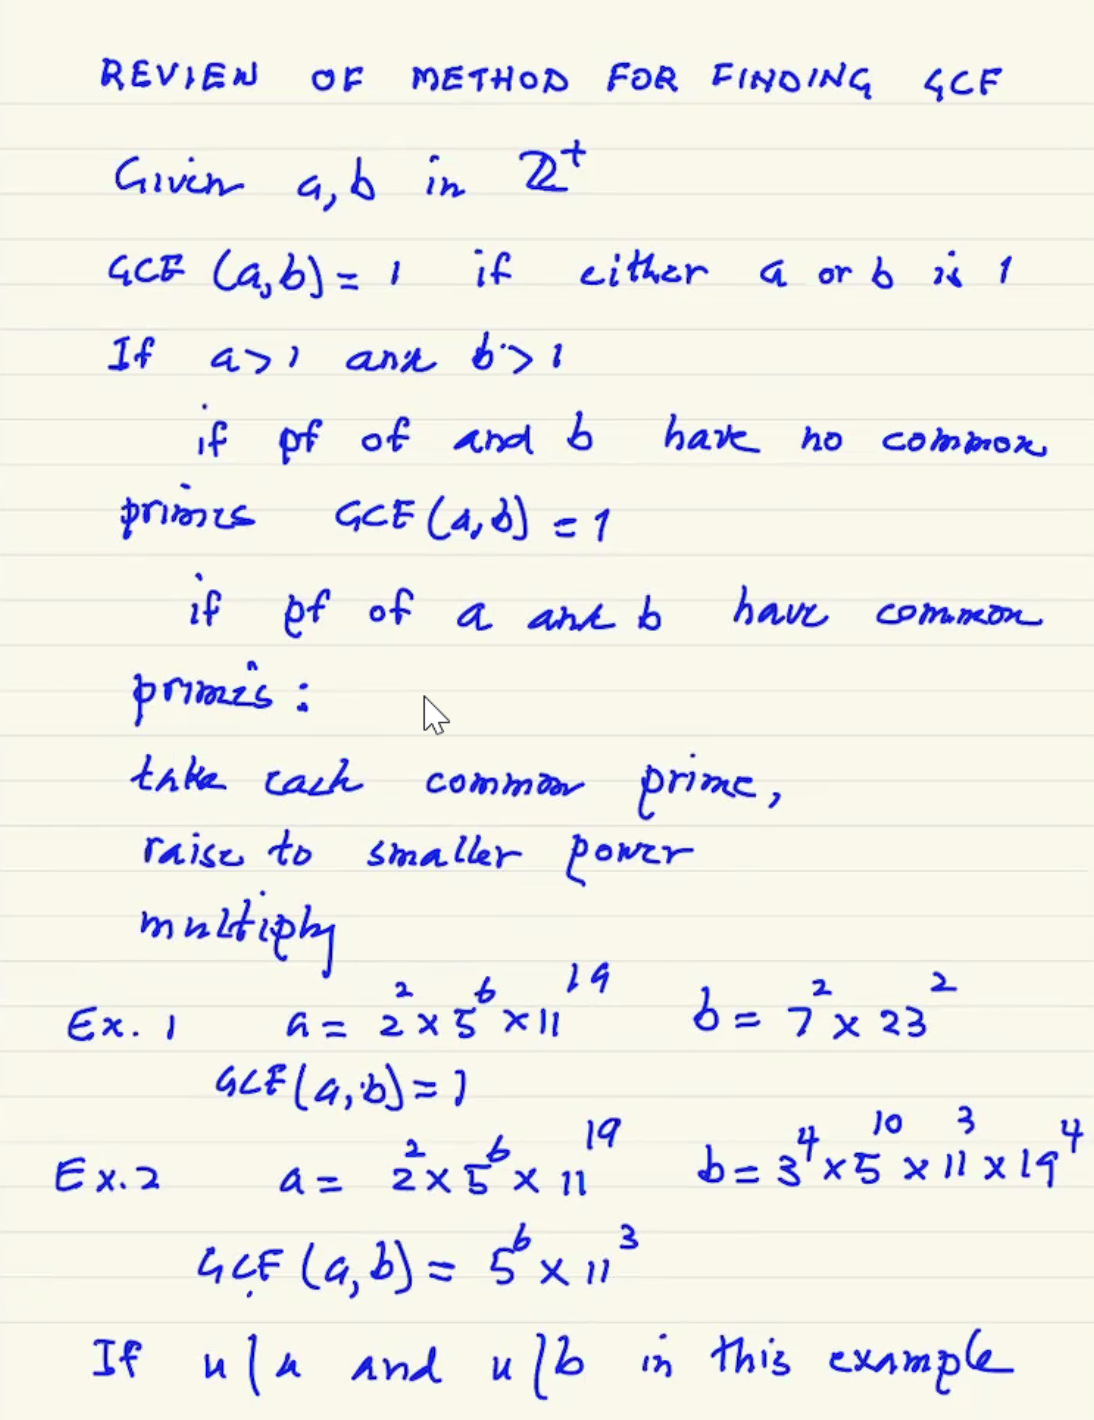 REVIEW OF METHOD FOR FINDING GCF
Given a, b in ℤ⁺
GCF (a,b) = 1 if either a or b is 1
If a > 1 and b > 1
if pf of and b have no common
primes GCF (a,b) = 1
if pf of a and b have common
primes :
take each common prime,
raise to smaller power
multiply
Ex. 1 a = 2² × 5⁶ × 11¹⁹ b = 7² × 23²
GCF (a,b) = 1
Ex. 2 a = 2² × 5⁶ × 11¹⁹ b = 3⁴ × 5¹⁰ × 11³ × 19⁴
GCF (a,b) = 5⁶ × 11³
If u|a and u|b in this example